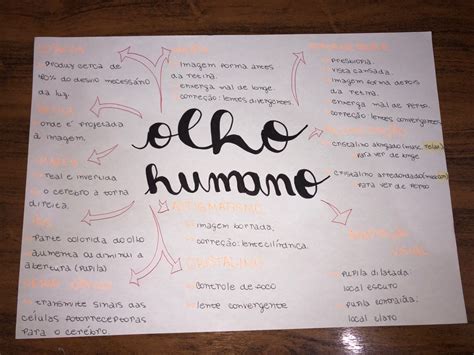 Produz cerca de
40% do desvio necessário
da luz.
onde é projetada
a imagem.
real e invertida
o cérebro a torna
direita.
Parte colorida do olho
aumenta ou diminui a
abertura (pupila)
transmite sinais das
células fotorreceptoras
para o cérebro.
imagem forma antes
da retina.
enxerga mal de longe.
correção: lentes divergentes
olho
humano
ASTIGMATISMO
imagem borrada.
correção: lente cilíndrica.
CRISTALINO
controle de foco
lente convergente
presbiopia
vista cansada.
imagem forma depois
da retina.
enxerga mal de perto.
correção: lentes convergentes
cristalino alongado (musc. relax)
para ver de longe
cristalino arredondado
para ver de perto
pupila dilatada:
local escuro
pupila contraída:
local claro